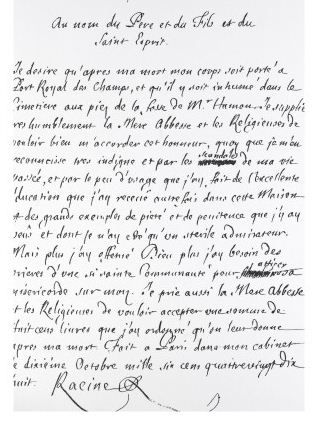 Au nom du Pere et du Fils et du
Saint Esprit.
Je desire qu'apres ma mort mon corps soit porté a
Port Royal des Champs, et qu'il y soit inhumé dans le
Cimetiere aux piez de la fosse de Mr Hamon. Je supplie
tres humblement la Mere Abbesse et les Religieuses de
vouloir bien m'accorder cet honneur, quoy que je m'en
reconnoisse tres indigne et par les scandales de ma vie
passée, et par le peu d'usage que j'ay fait de l'excellente
education que j'ay receüe autrefois dans cette Maison
et des grands exemples de pieté et de penitence que j'y ay
veus et dont je n'ay esté qu'un sterile admirateur.
Mais plus j'ay offensé Dieu plus j'ay besoin des
prieres d'une si sainte Communauté pour attirer sa
misericorde sur moy. Je prie aussi la Mere Abbesse
et les Religieuses de vouloir accepter une somme de
huit cens livres que j'ay ordonné qu'on leur donne
apres ma mort. Fait a Paris dans mon cabinet
le dixiéme Octobre mille six cens quatre vingt dix
huit. Racine